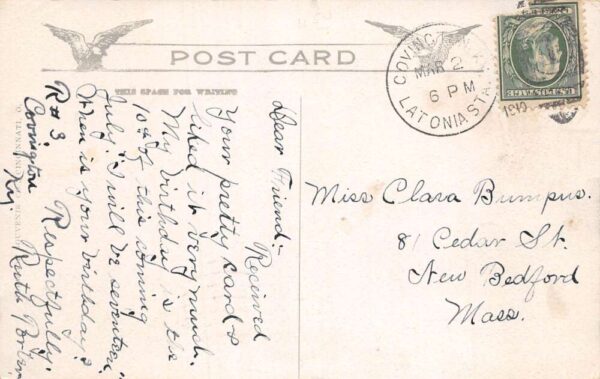 POST CARD
THIS SPACE FOR WRITING
COVING
MAR 2
6 PM
1910
LATONIA STA.
Dear Friend:-
Recieved
Your pretty card &
liked it very much.
My birthday is the
10th of this coming
July. I will be seventeen.
When is your birthday?
Respectfully.
Ruth Porter
R # 3
Covington
Ky.
Miss Clara Bumpus.
81 Cedar St.
New Bedford
Mass.